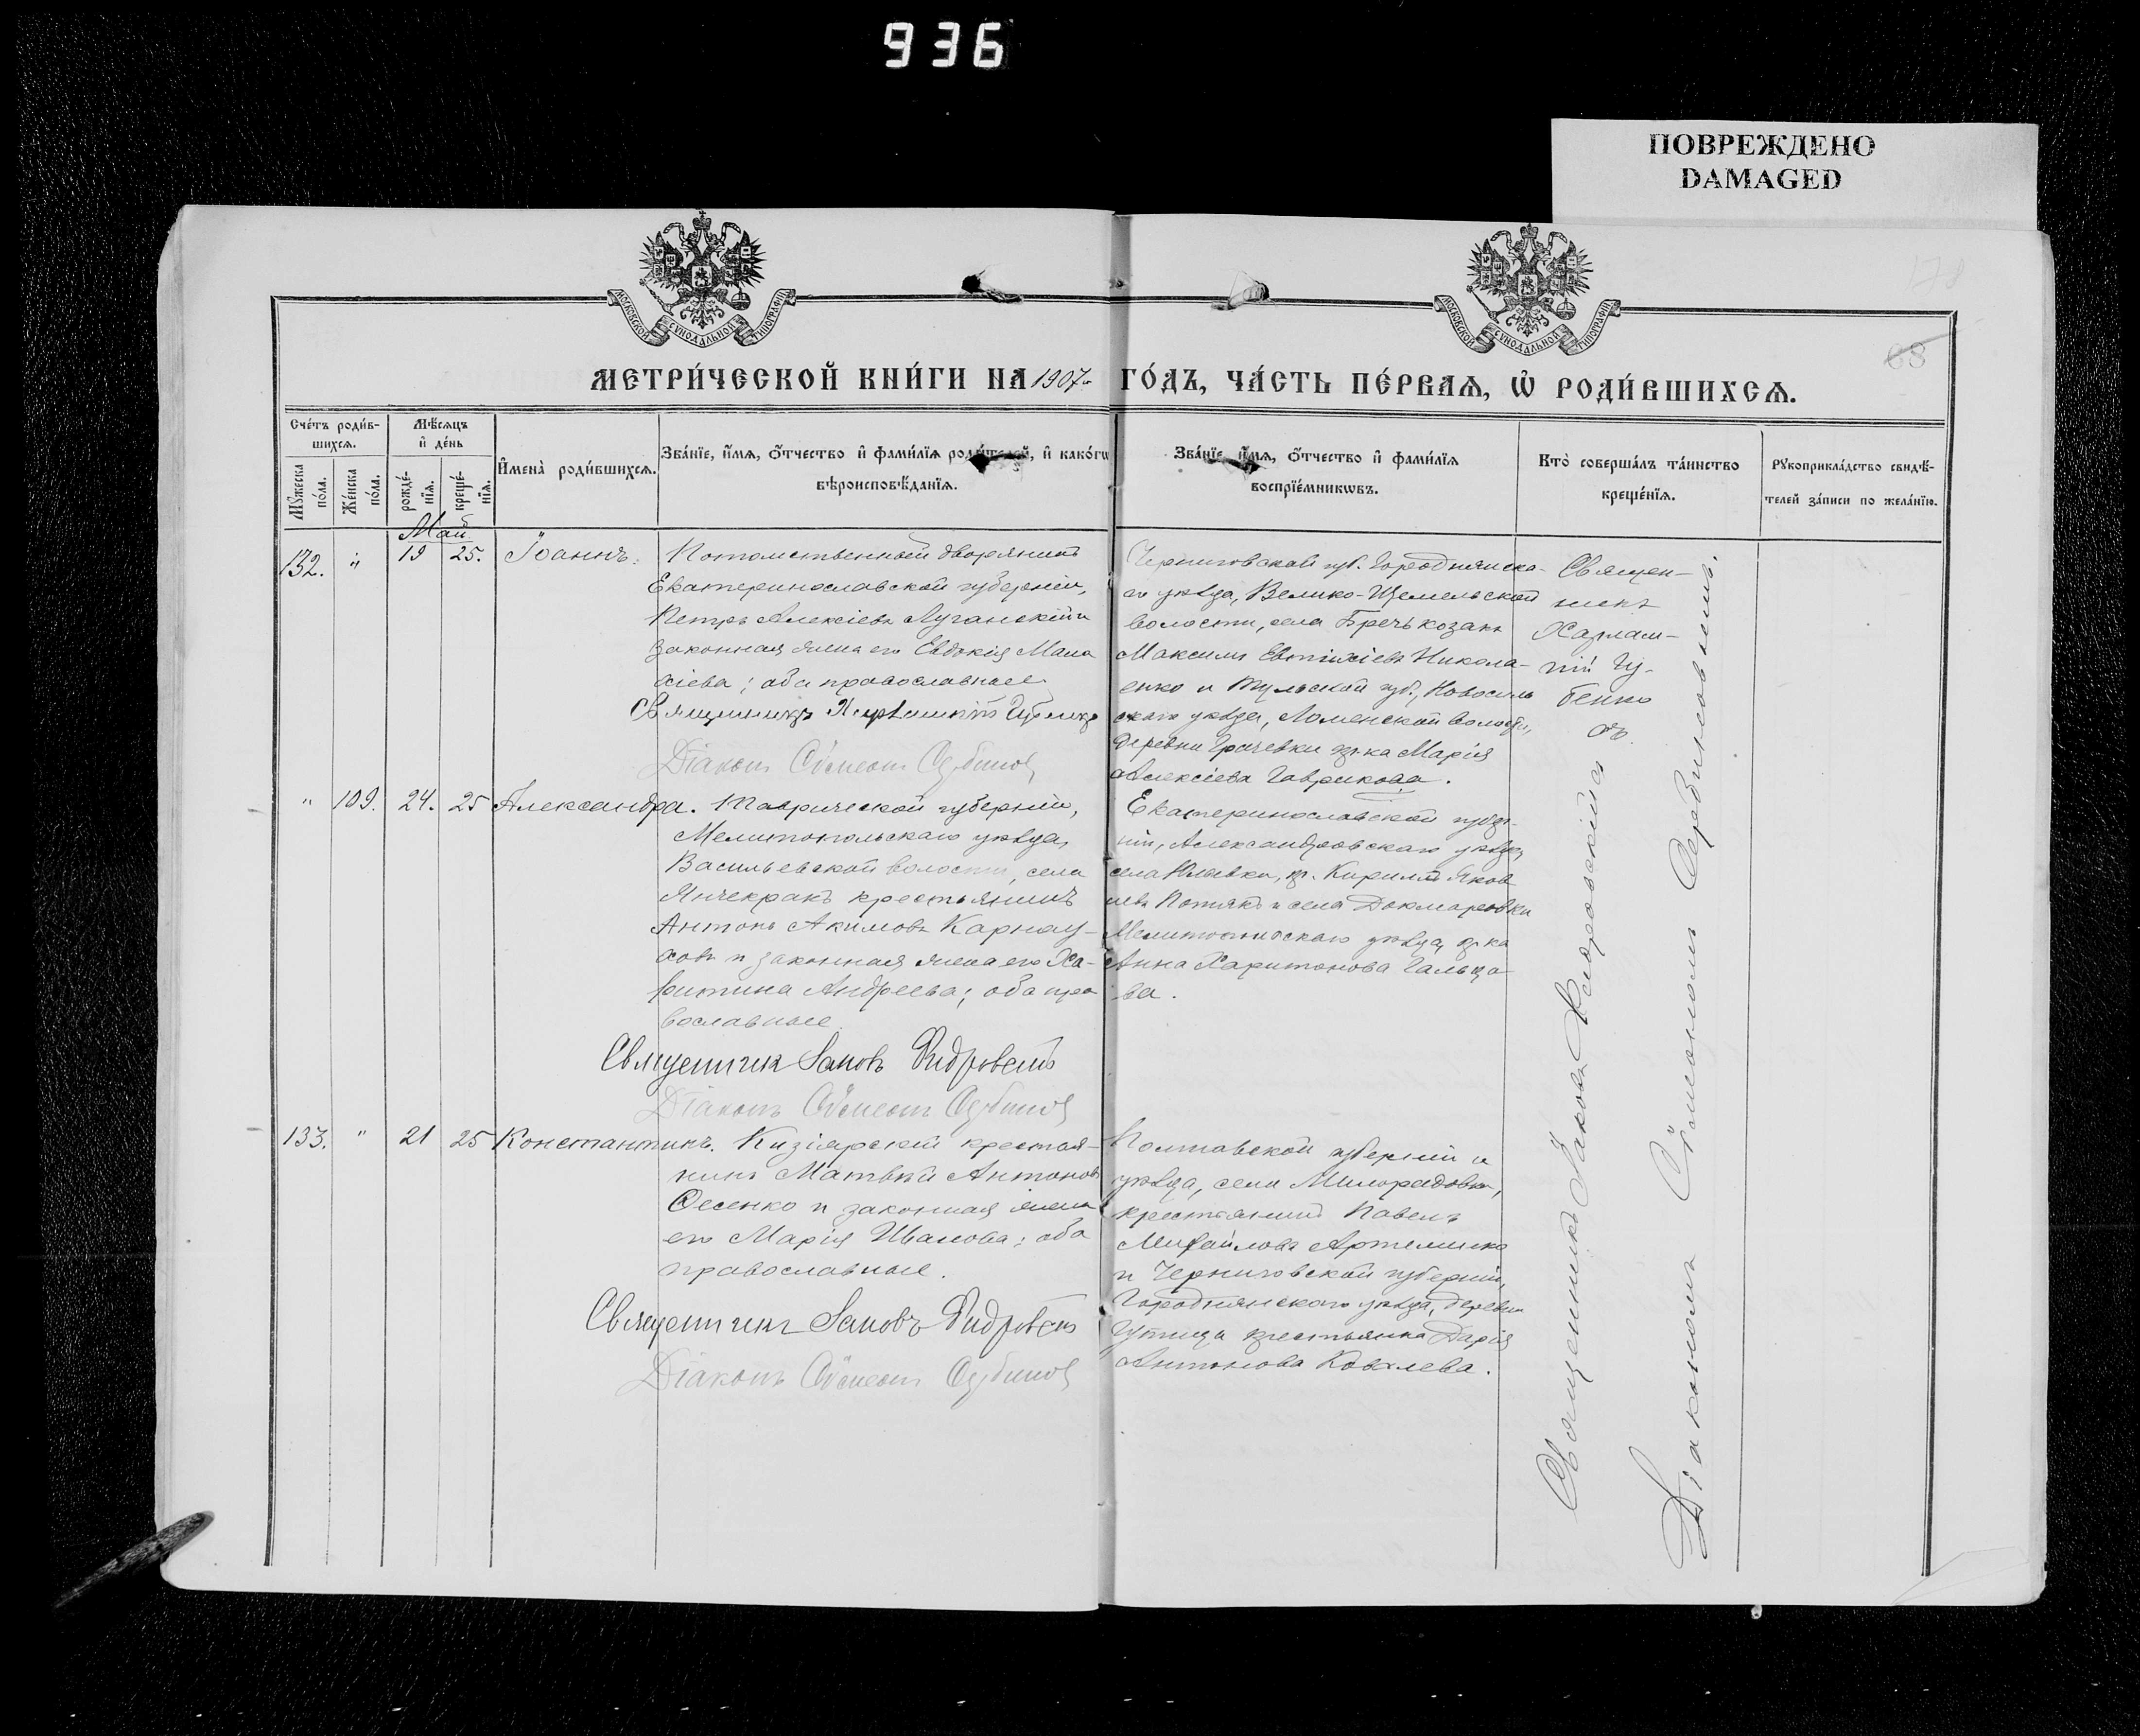 936
ПОВРЕЖДЕНО
DAMAGED
МОСКОВСКОЙ СѴНОДАЛЬНОЙ ТИПОГРАФІИ
МОСКОВСКОЙ СѴНОДАЛЬНОЙ ТИПОГРАФІИ
68
МЕТРИ́ЧЕСКОЙ КНИ́ГИ НА 1907 ГО́ДЪ, ЧА́СТЬ ПЕ́РВАѦ, Ѡ РОДИ́ВШИХСѦ.
Сче́тъ роди́в-
шихсѧ.
Мꙋжеска по́ла.
Же́нска по́ла.
Мѣ́сѧцъ
и҆ де́нь
рожде́-
нїѧ.
креще́-
нїѧ.
И҆мена̀ роди́вшихсѧ.
Зва́нїе, и҆́мѧ, ѻ҆́тчество и҆ фами́лїѧ роди́телей, и҆ како́гѡ
вѣроисповѣ́данїѧ.
Зва́нїе, и҆́мѧ, ѻ҆́тчество и҆ фами́лїѧ
воспрїе́мникѡвъ.
Кто̀ соверша́лъ та́инство
креще́нїѧ.
Рꙋкоприкла́дство свидѣ́-
телей за́писи по жела́нїю.
Май
132. " 19 25. Іоаннъ.
Потомственный дворянинъ
Екатеринославской губерніи,
Петръ Алексіевъ Луганскій и
законная жена его Евдокія Мала
хіева; оба православные
Священникъ Харлампій Губенко
Діаконъ Сѵмеонъ Сербиновъ
Черниговской губ. Городнянска-
го уѣзда, Велико-Щемельской
волости, села Бречь козакъ
Максимъ Евтихіевъ Никола-
енко и Тульской губ., Новосиль
скаго уѣзда, Ломенской волости,
деревни Грачевки кр-ка Марія
Алексіева Гаврикова.
Священ-
никъ
Харлам-
пій Гу-
бенко
съ
" 109. 24. 25 Александра.
Таврической губерніи,
Мелитопольскаго уѣзда,
Васильевской волости, села
Янчекракъ крестьянинъ
Антонъ Акимовъ Карнау-
ховъ и законная жена его Ха-
ритина Андреева; оба пра
вославные.
Священникъ Іаковъ
Діаконъ Сѵмеонъ Сербиновъ
Екатеринославской губер-
ніи, Александровскаго уѣзда,
села кр. Кирилъ Яков
левъ и села
Мелитопольскаго уѣзда, кр-ка
Анна Харитонова Гальцо-
ва.
133. " 21 25 Константинъ.
Кизіярскій крестья-
нинъ Матвѣй Антоновъ
Фесенко и законная жена
его Марія Иванова; оба
православные.
Священникъ Іаковъ
Діаконъ Сѵмеонъ Сербиновъ
Полтавской губерніи и
уѣзда, села Милорадовки,
крестьянинъ Павелъ
Михайловъ Артеменко
и Черниговской губерніи,
Городнянскаго уѣзда, деревни
крестьянка Дарія
Антонова Ковалева.
Священникъ Іаковъ
Діакономъ Сѵмеономъ Сербиновымъ.